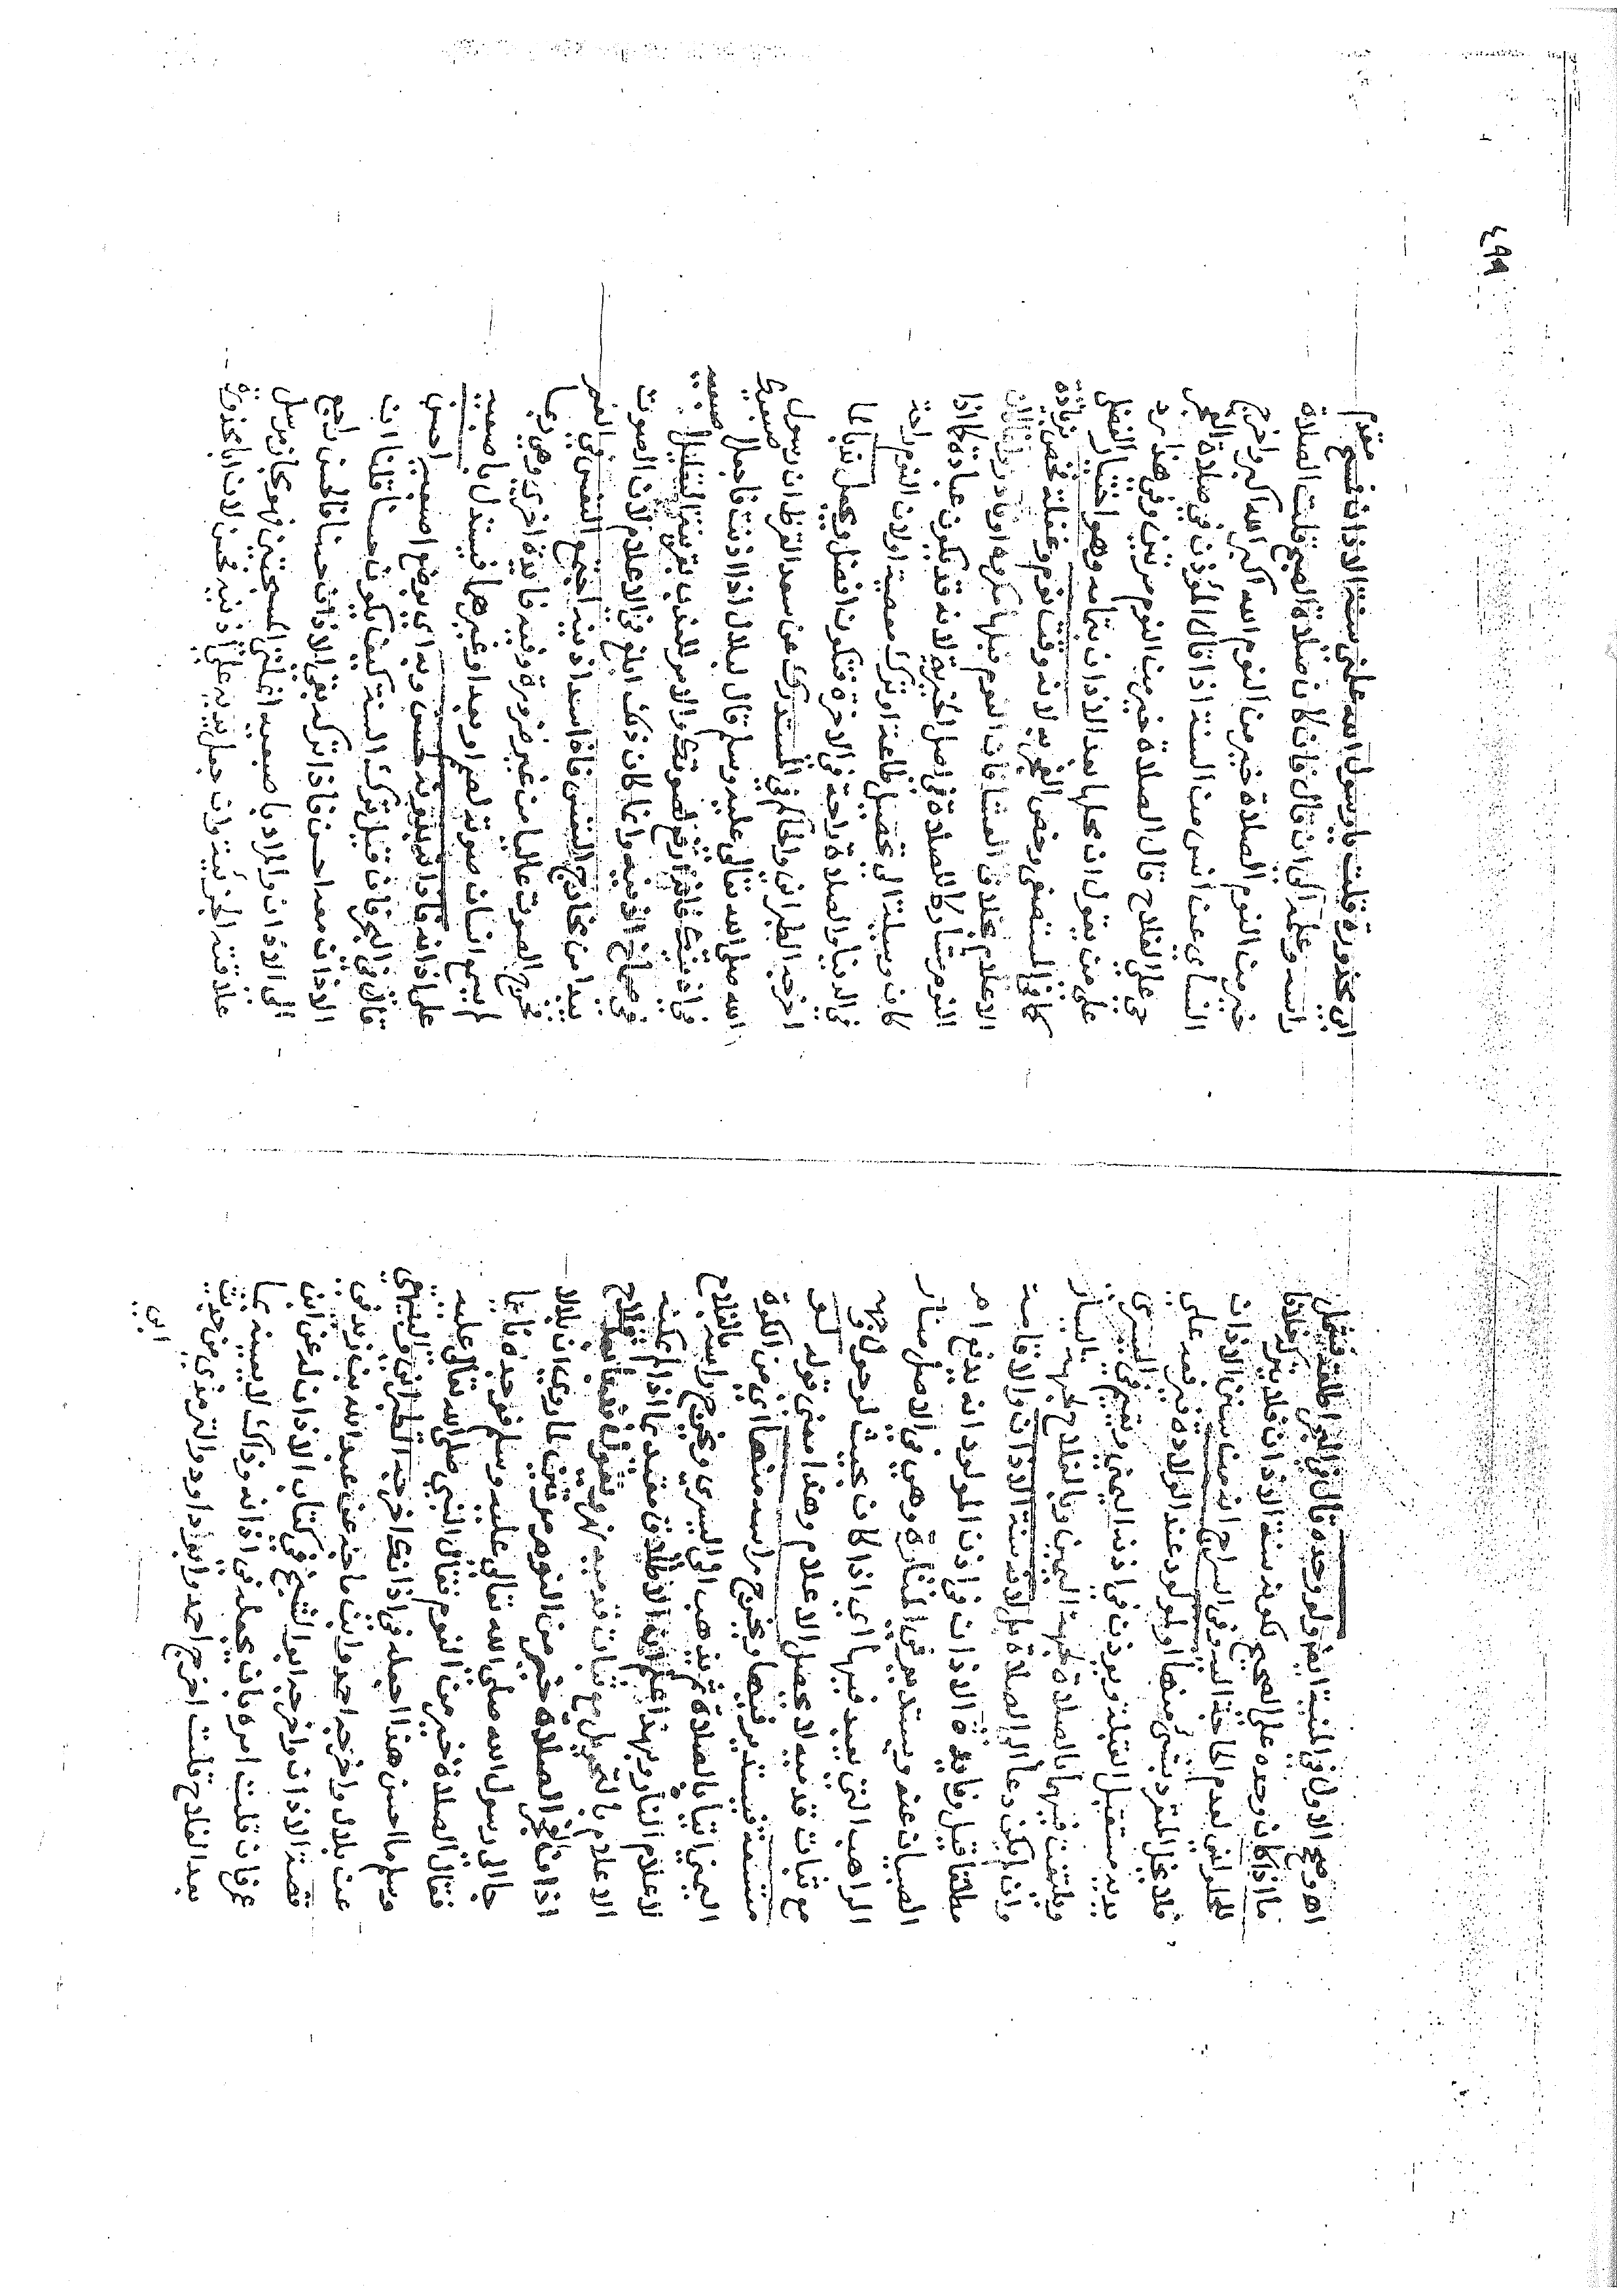 اه ورجح الاول في المنية ايضا ولو وحده قال في البحر اطلقه فشمل
ما اذا كان وحده على الصحيح لكونه سنة الاذان فلا يتركه خلافا
للحلواني لعدم الحاجة اليه وفي السراج انه من سنن الاذان
فلا يخل المنفرد بشئ منها او لمولود عند الولادة فيرفعه على
يديه مستقبل القبلة ويوذن في اذنه اليمنى ويقيم في اليسرى
ويلتفت فيهما بالصلاة لجهة اليمين وبالفلاح لجهة اليسار
وان لم يكن دعا الى الصلاة بل لانه سنة الاذان والاقامة
مطلقا قيل وفايدة الاذان في اذن المولود انه يدفع ام
الصبيان عنه ويستدير في المنارة وهي في الاصل منار
الراهب التي يعبد فيها اي اذا كان بحيث لو حول وجهه
مع ثبات قدميه لا يحصل الاعلام وهذا معنى قوله لو
متسعة فيستدير فيها ويخرج راسه منها اي من الكوة
اليمنى اتيا بالصلاة ثم يذهب الى اليسرى ويخرج راسه بالفلاح
الاعلام بالتحويل مع ثبات قدميه ثم ويقول
اذان الفجر الصلاة خير من النوم مرتين لما روي ان بلالا
جا الى رسول الله صلى الله تعالى عليه وسلم فوجده نايما
فقال الصلاة خير من النوم فقال النبي صلى الله تعالى عليه
وسلم ما احسن هذا اجعله في اذانك اخرجه الطبراني والبيهقي
عن بلال واخرجه احمد وابن ماجة عن عبد الله بن زيد في
قصة الاذان واخرجه ابو الشيخ في كتاب الاذان له عن ابن
عمر فان قلت امره بان يجعله في اذانه وذاك لا يعينه بما
بعد الفلاح قلت اخرج احمد وابو داود والترمذي من حديث
ابى
٤٩٩
ابى محذورة قلت يا رسول الله علمني سنة الاذان فمسح مقدم
راسه وعلمه الى ان قال فان كان صلاة الصبح قلت الصلاة
خير من النوم الصلاة خير من النوم الله اكبر الله اكبر واخرج
النسائى عن انس من السنة اذا قال الموذن في صلاة الفجر
حي على الفلاح قال الصلاة خير من النوم مرتين وفي هذا رد
على من يقول ان محلها بعد الاذان بتمامه وهو اختيار الفضلي
كما في المستصفى وخص الفجر به لانه وقت نوم وغفلة فخص بزيادة
الاعلام بخلاف العشا فان النوم قبلها مكروه او نادر
النوم مشاركا للصلاة في اصل الخيرية لانه قد يكون عبادة كما اذا
كان وسيلة الى تحصيل طاعة او ترك معصية اولان النوم راحة
في الدنيا والصلاة راحة في الاخرة فتكون افضل ويجعل ندبا لما
اخرجه الطبراني والحاكم في المستدرك عن سعد القرظ ان رسول
الله صلى الله تعالى عليه وسلم قال لبلال اذا اذنت فاجعل اصبعيك
في اذنيك فانه ارفع لصوتك والامر للندب بقرينة التعليل
في صماخ الاذنيه وانما كان ذلك ابلغ في الاعلام لان الصوت
يبدا من مخارج النفس فاذا سد اذنيه اجتمع النفس في الفم
فخرج الصوت عاليا من غير ضرورة وفيه فايدة اخرى وهي ربما
لم يسمع انسان صوته لصمم او بعد او غيرهما فيستدل باصبعيه
على اذانه فاذا تركه فحسن وبه اي بوضع اصبعيه احسن
قال في البحر فان قيل ترك السنة كيف يكون حسنا قلنا ان
الاذان معه احسن فاذا تركه بقي الاذان حسنا فالحسن راجع
الى الاذان والمراد باصبعيه انملتي المسبحتين فهو مجاز مرسل
علاقته الجزئية وان جعل يديه على اذنيه فحسن لان ابا محذورة